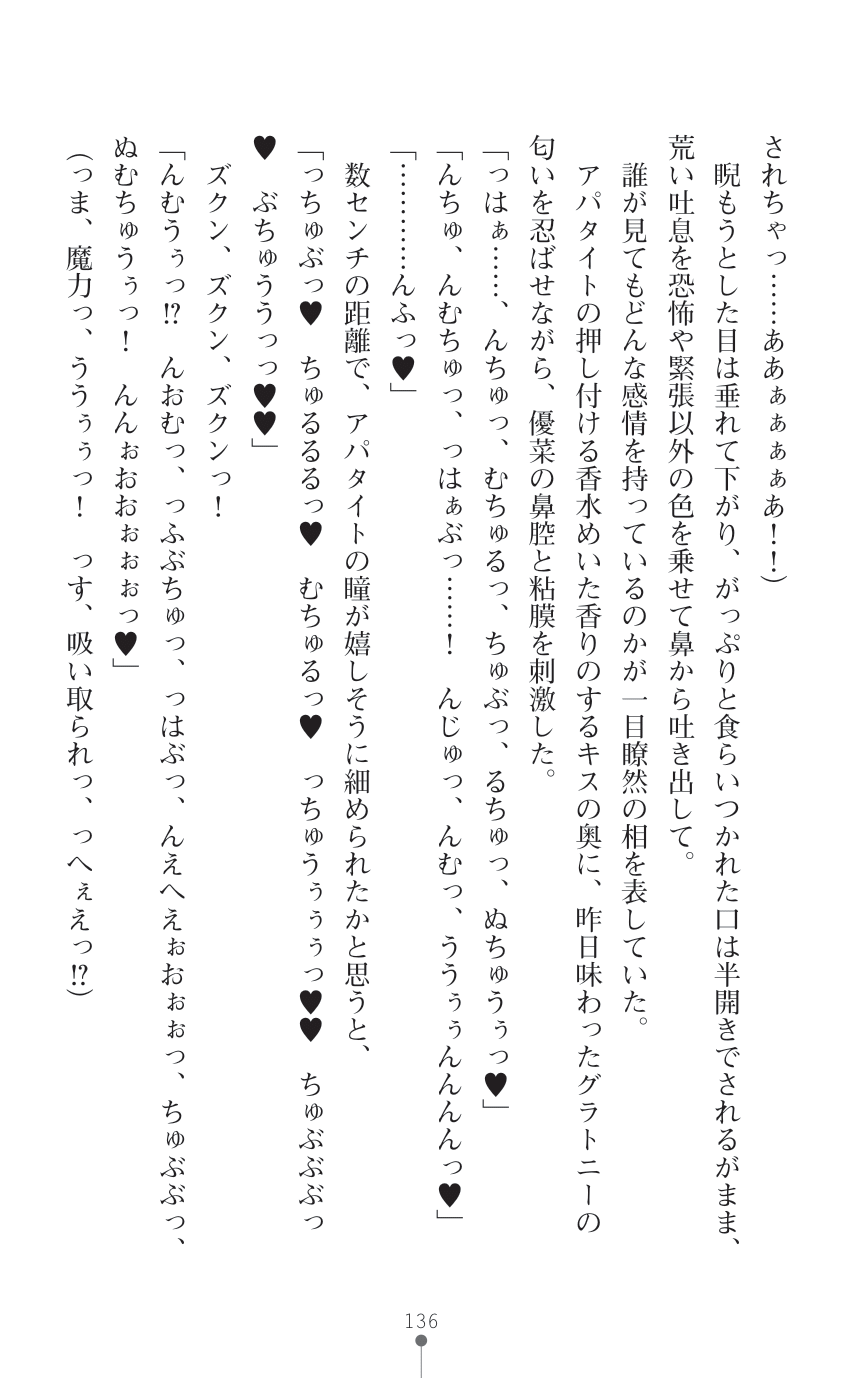 されちゃっ……ああぁぁぁぁあ！！）
　睨もうとした目は垂れて下がり、がっぷりと食らいつかれた口は半開きでされるがまま、
荒い吐息を恐怖や緊張以外の色を乗せて鼻から吐き出して。
　誰が見てもどんな感情を持っているのかが一目瞭然の相を表していた。
　アパタイトの押し付ける香水めいた香りのするキスの奥に、昨日味わったグラトニーの
匂いを忍ばせながら、優菜の鼻腔と粘膜を刺激した。
「っはぁ……、んちゅっ、むちゅるっ、ちゅぶっ、るちゅっ、ぬちゅうぅっ♥」
「んちゅ、んむちゅっ、っはぁぶっ……！　んじゅっ、んむっ、ううぅぅんんんんっ♥」
「…………んふっ♥」
　数センチの距離で、アパタイトの瞳が嬉しそうに細められたかと思うと、
「っちゅぶっ♥　ちゅるるるっ♥　むちゅるっ♥　っちゅうぅぅぅっ♥♥　ちゅぶぶぶっ
♥　ぶちゅううっっ♥♥」
　ズクン、ズクン、ズクンっ！
「んむうぅっ!?　んおむっ、っふぶちゅっ、っはぶっ、んえへえぉおぉぉっ、ちゅぶぶっ、
ぬむちゅうぅっ！　んんぉおおぉぉぉっ♥」
（っま、魔力っ、ううぅぅっ！　っす、吸い取られっ、っへぇえっ!?）
136